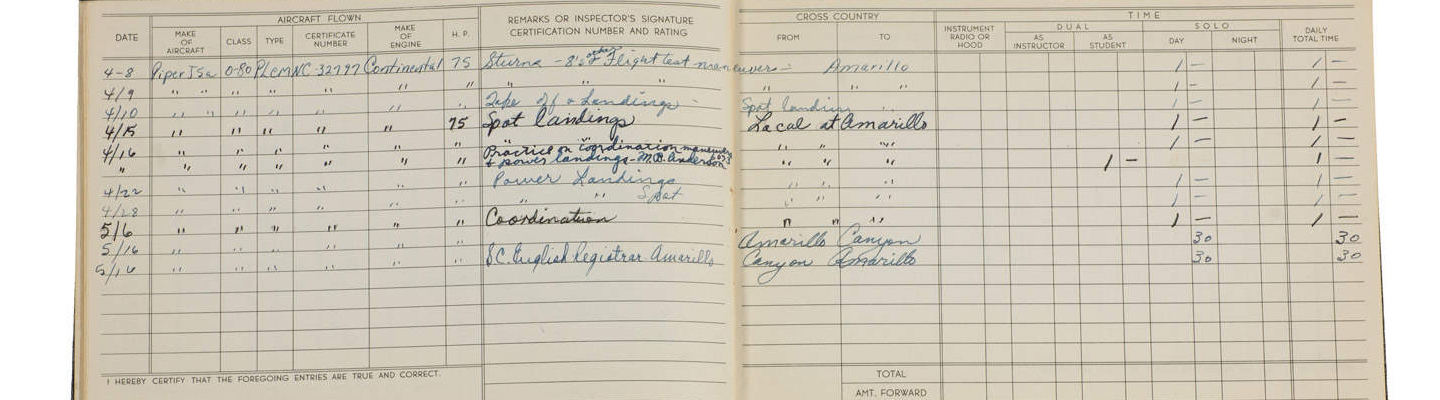 AIRCRAFT FLOWN REMARKS OR INSPECTOR'S SIGNATURE CERTIFICATION NUMBER AND RATING CROSS COUNTRY TIME
DATE MAKE OF AIRCRAFT CLASS TYPE CERTIFICATE NUMBER MAKE OF ENGINE H. P. FROM TO INSTRUMENT RADIO OR HOOD DUAL AS INSTRUCTOR AS STUDENT SOLO DAY NIGHT DAILY TOTAL TIME
4-8 Piper J5a 0-80 PLCM NC 32797 Continental 75 - 8's & other Flight test maneuvers - Amarillo 1 - 1 -
4/9 " " " " " " " " " " " " " 1 - 1 -
4/10 " " " " " " " Take off & Landings - Spot landing " 1 - 1 -
4/15 " " " " " 75 Spot landings Local at Amarillo 1 - 1 -
4/16 " " " " " " " " " " 1 - 1 -
" " " " " " " Practice on coordination maneuvers & power landings - M.B. Anderson " " " 1 - 1 -
4/22 " " " " " " Power Landings " " " 1 - 1 -
4/28 " " " " " " " " Spot " " " 1 - 1 -
5/6 " " " " " " Coordination " " " 1 - 1 -
5/16 " " " " " " Amarillo Canyon 30 30
5/16 " " " " " " S.C. English Registrar Amarillo Canyon Amarillo 30 30
I HEREBY CERTIFY THAT THE FOREGOING ENTRIES ARE TRUE AND CORRECT.
TOTAL
AMT. FORWARD